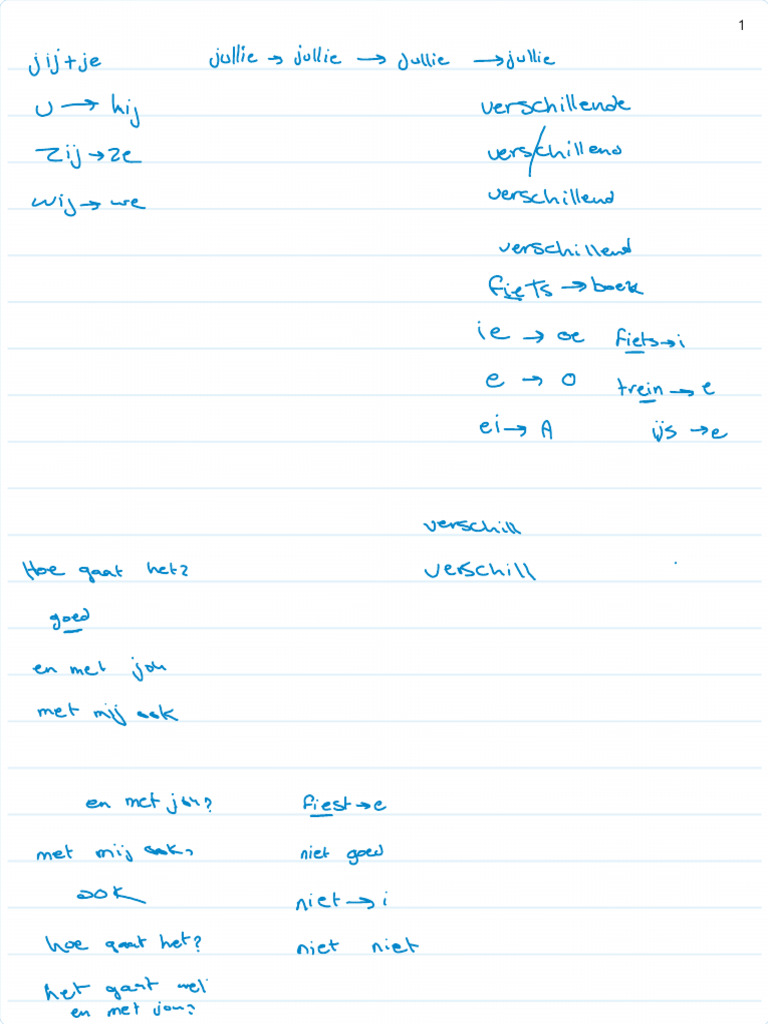 1
jij+je jullie → jullie → jullie → jullie
u → hij verschillende
zij → ze verschillend
wij → we verschillend
verschillend
fiets → boek
ie → oe fiets → i
e → o trein → e
ei → A ijs → e
verschill
Hoe gaat het? verschill
goed
en met jou
met mij ook
en met jou? fiest → e
met mij ook? niet goed
ook niet → i
hoe gaat het? niet niet
het gaat wel
en met jou?